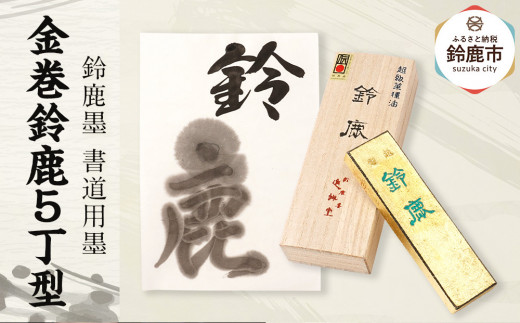 鈴鹿墨 書道用墨
金巻鈴鹿5丁型
ふるさと納税
鈴鹿市
suzuka city
鈴
鹿
超級菜種油
鈴鹿
進誠堂
鈴鹿